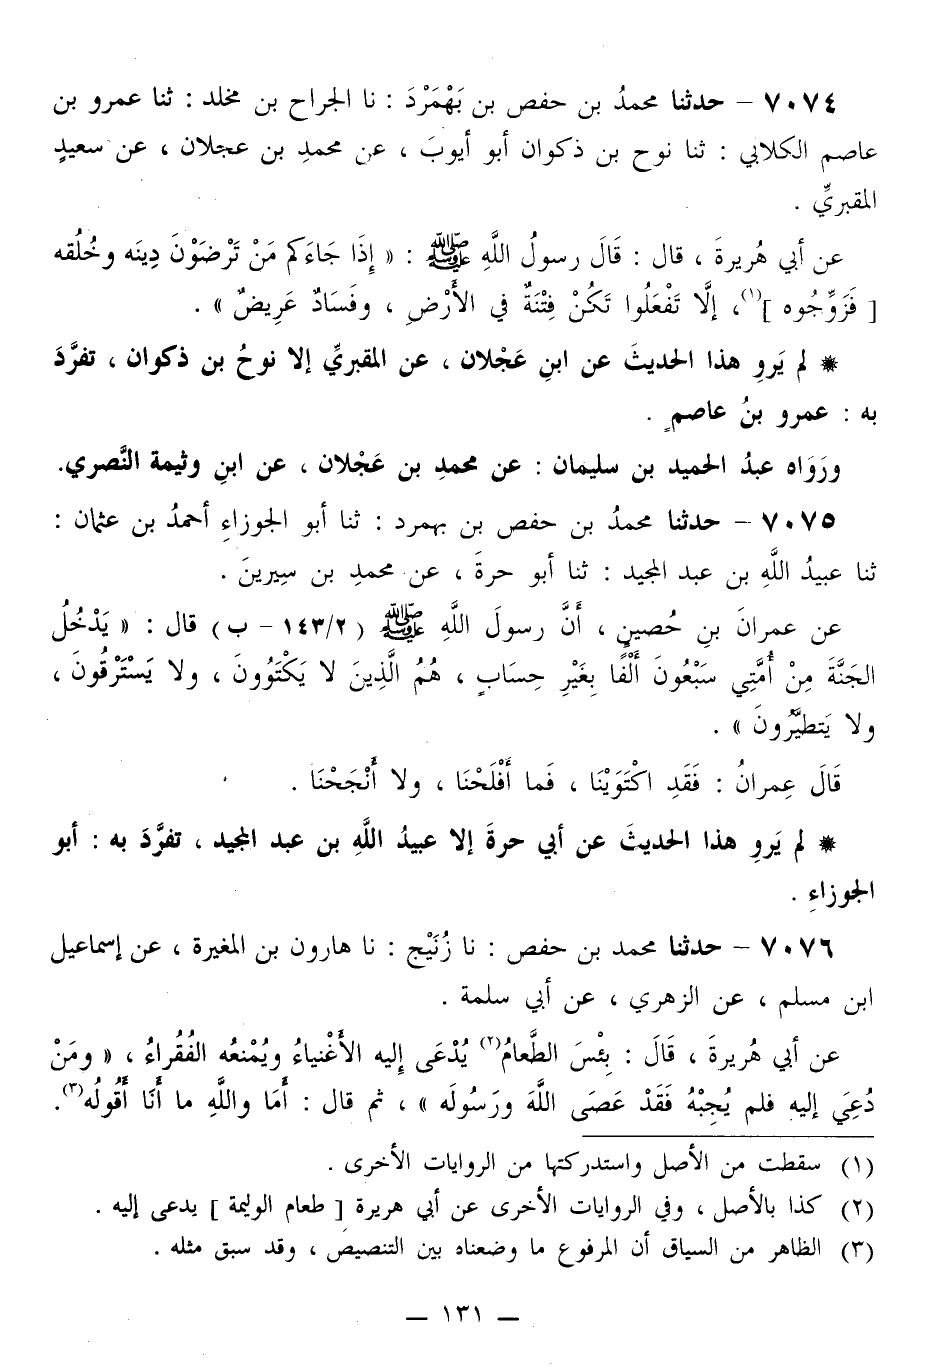 ٧٠٧٤ – حدثنا محمدُ بن حفص بن بَهْمَرْدَ : نا الجراح بن مخلد : ثنا عمرو بن
عاصم الكلابي : ثنا نوح بن ذكوان أبو أيوبَ ، عن محمدِ بن عجلان ، عن سعيدٍ
المقبريِّ .
عن أبي هُريرةَ ، قال : قَالَ رسولُ اللَّهِ ﷺ : « إِذَا جَاءَكم مَنْ تَرْضَوْنَ دِينَه وخُلُقه
[ فَزَوِّجُوه ](١)، إلَّا تَفْعَلُوا تَكُنْ فِتْنَةٌ في الأَرْضِ ، وفَسَادٌ عَرِيضٌ » .
* لم يَروِ هذا الحديثَ عن ابنِ عَجْلان ، عن المقبريِّ إلا نوحُ بن ذكوان ، تفرَّدَ
به : عمرو بنُ عاصمٍ .
ورَوَاه عبدُ الحميد بن سليمان : عن محمدِ بن عَجْلان ، عن ابنِ وثيمة النَّصري.
٧٠٧٥ – حدثنا محمدُ بن حفص بن بهمرد : ثنا أبو الجوزاءِ أحمدُ بن عثمان :
ثنا عبيدُ اللَّهِ بن عبد المجيد : ثنا أبو حرةَ ، عن محمدِ بن سِيرينَ .
عن عمرانَ بنِ حُصينٍ ، أنَّ رسولَ اللَّهِ ﷺ ( ١٤٣/٢ – ب ) قال : « يَدْخُلُ
الجَنَّةَ مِنْ أُمَّتِي سَبْعُونَ أَلْفًا بِغَيْرِ حِسَابٍ ، هُمُ الَّذِينَ لا يَكْتَوُونَ ، ولا يَسْتَرْقُونَ ،
ولا يَتطيَّرُونَ » .
قَالَ عِمرانُ : فَقَدِ اكْتَوَيْنَا ، فَما أَفْلَحْنَا ، ولا أَنْجَحْنَا .
* لم يَروِ هذا الحديثَ عن أبي حرةَ إلا عبيدُ اللَّهِ بن عبد المجيد ، تفرَّدَ به : أبو
الجوزاءِ .
٧٠٧٦ – حدثنا محمد بن حفص : نا زُنَيْج : نا هارون بن المغيرة ، عن إسماعيل
ابن مسلم ، عن الزهري ، عن أبي سلمة .
عن أبي هُريرةَ ، قَالَ : بِئْسَ الطَّعامُ(٢) يُدْعَى إليه الأَغْنياءُ ويُمْنعُه الفُقُراءُ ، « ومَنْ
دُعِيَ إليه فلم يُجِبْهُ فَقَدْ عَصَى اللَّهَ ورَسُولَه » ، ثم قال : أَمَا واللَّهِ ما أَنَا أَقُولُه(٣).
(١) سقطت من الأصل واستدركتها من الروايات الأخرى .
(٢) كذا بالأصل ، وفي الروايات الأخرى عن أبي هريرة [ طعام الوليمة ] يدعى إليه .
(٣) الظاهر من السياق أن المرفوع ما وضعناه بين التنصيص ، وقد سبق مثله .
— ١٣١ —